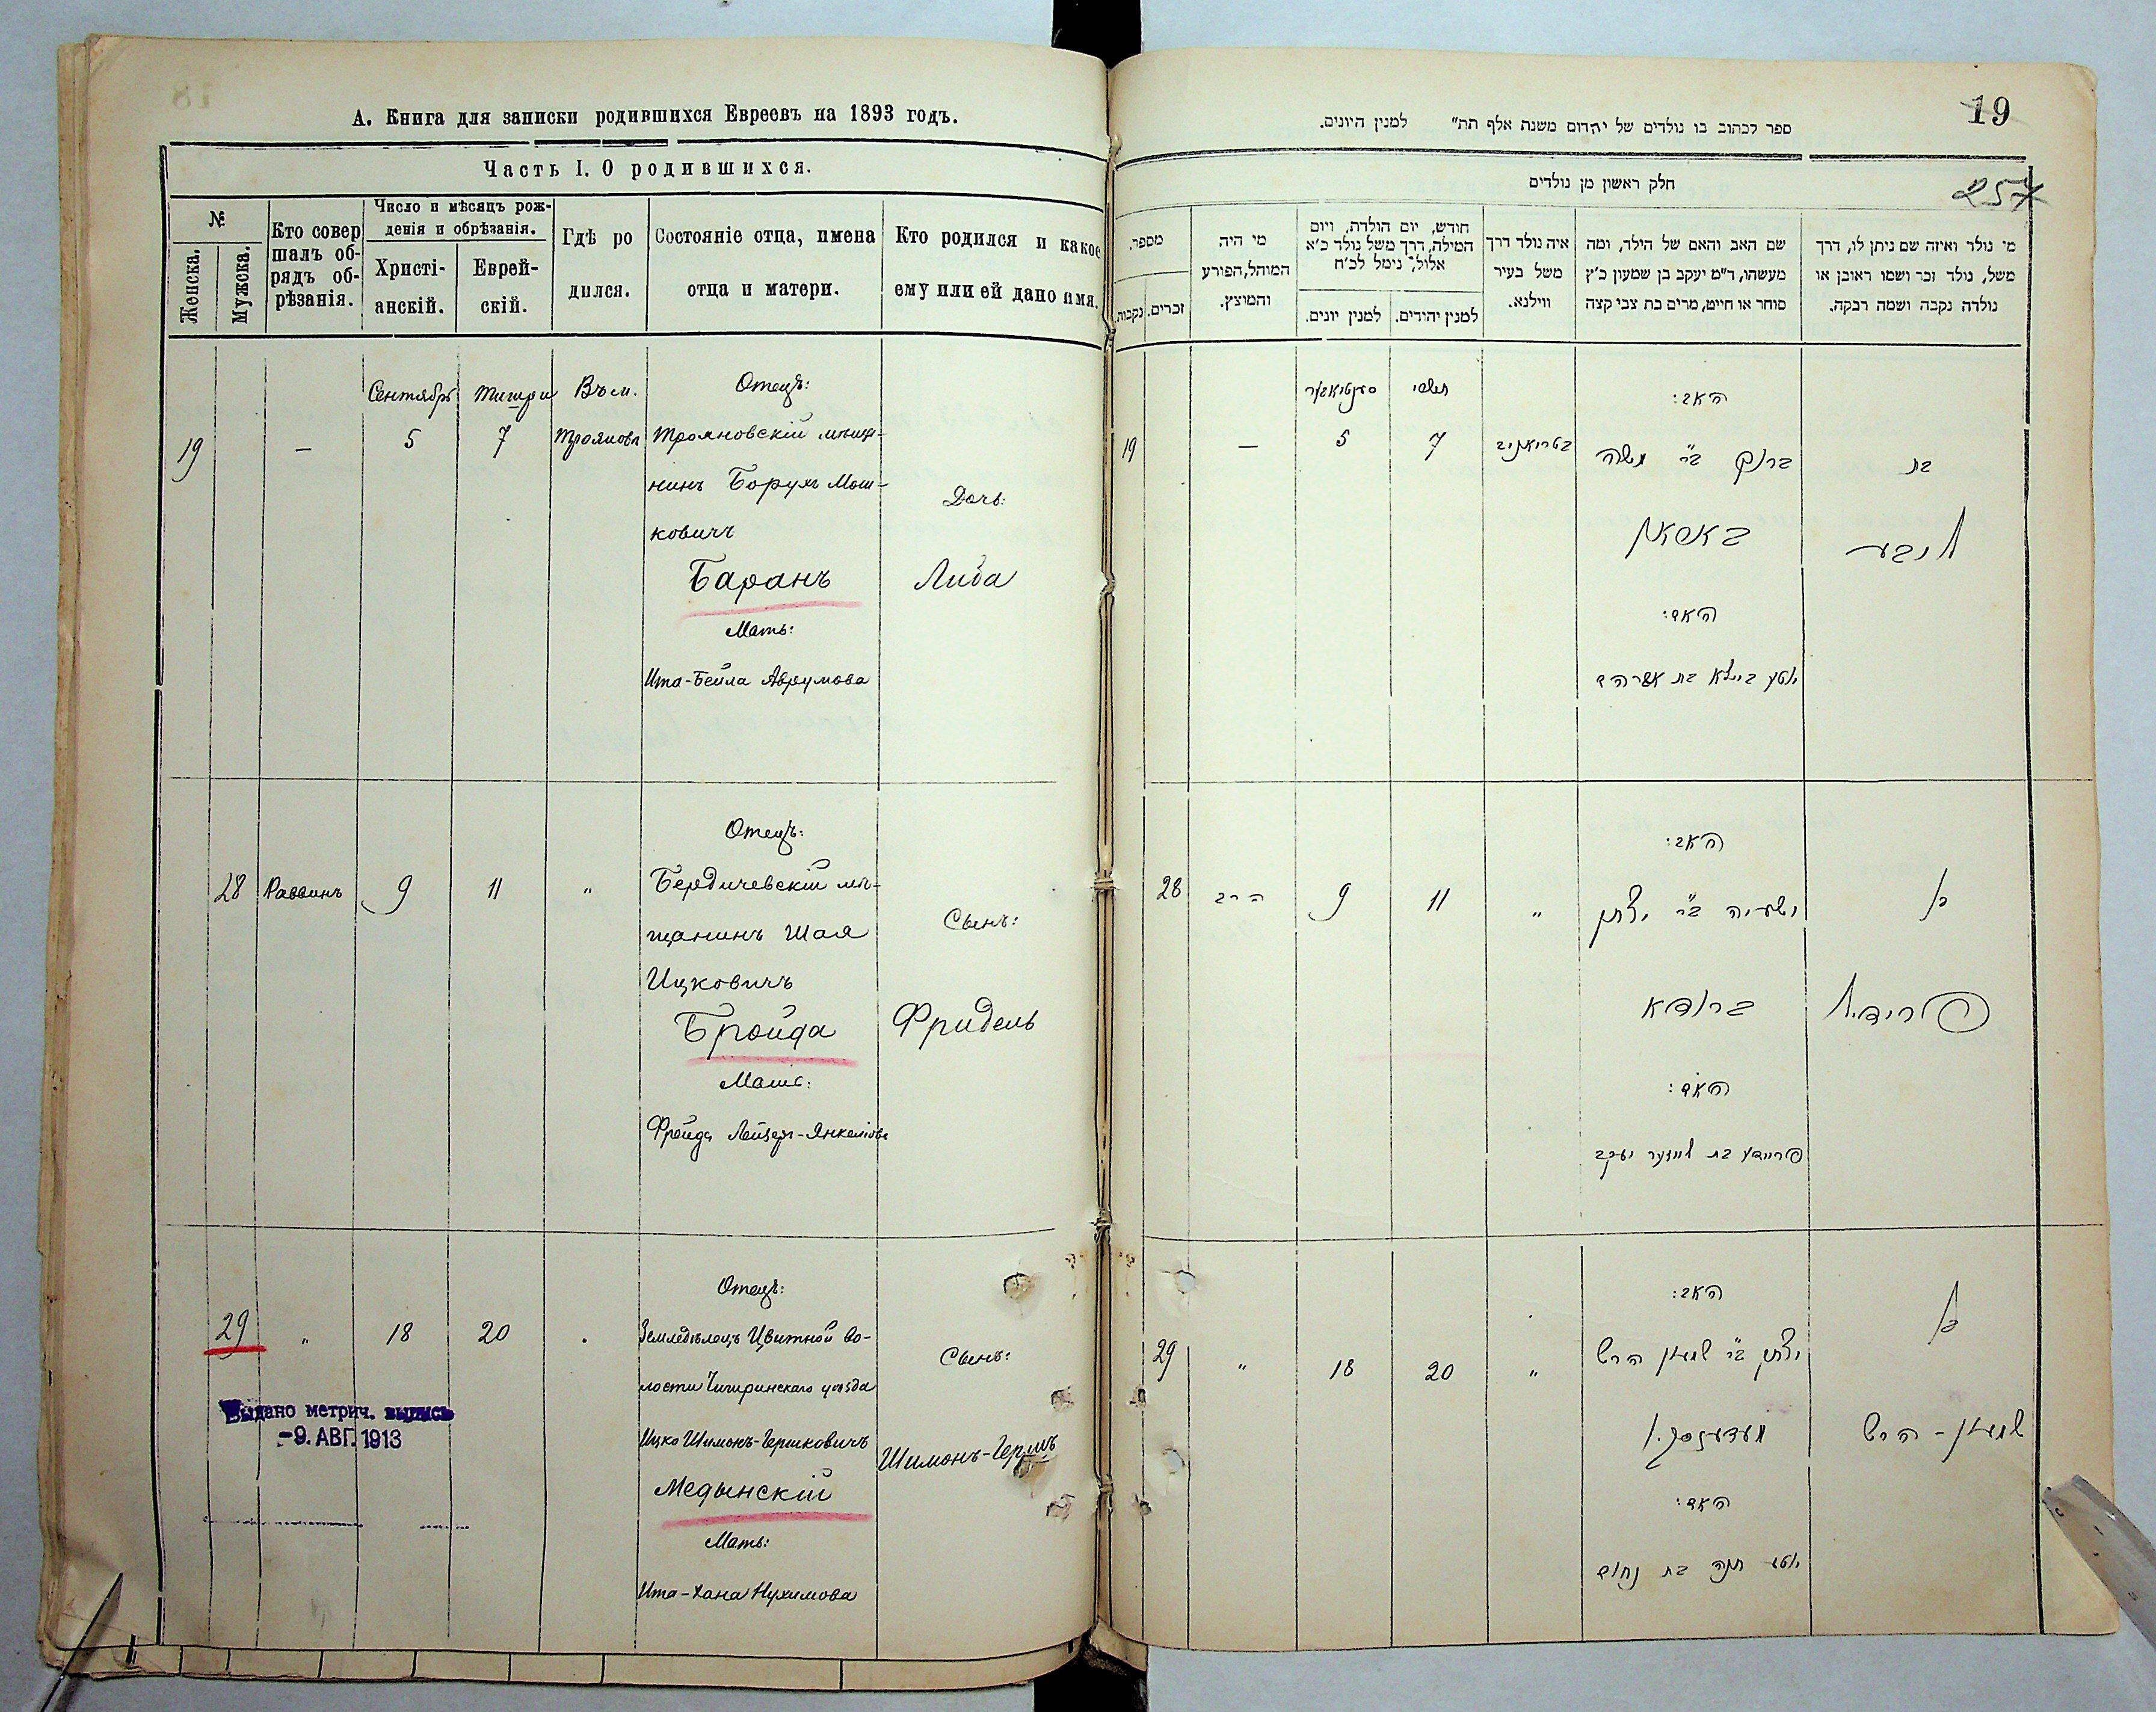 А. Книга для записки родившихся Евреевъ на 1893 годъ.
Часть I. О родившихся.
№
Женска.
Мужска.
Кто совер
шалъ об-
рядъ об-
рѣзанія.
Число и мѣсяцъ рож-
денія и обрѣзанія.
Христі-
анскій.
Еврей-
скій.
Гдѣ ро
дился.
Состояніе отца, имена
отца и матери.
Кто родился и какое
ему или ей дано имя.
19
—
Сентябрь
5
Тишри
7
Въ м.
Трояновѣ
Отецъ:
Трояновскій мѣща-
нинъ Борухъ Мош-
ковичъ
Баранъ
Мать:
Ита-Бейла Аврумова
Дочь:
Либа
28
Раввинъ
9
11
"
Отецъ:
Бердичевскій мѣ-
щанинъ Шая
Ицковичъ
Бройда
Мать:
Фрейда Лейзеръ-Янкелiова
Сынъ:
Фридель
29
"
18
20
Отецъ:
Земледѣлецъ Цвитной во-
лости Чигиринскаго уѣзда
Ицко Шимонъ-Гершковичъ
Медынскій
Мать:
Ита-Хана Нухимова
Сынъ:
Шимонъ-Гершъ
Выдано метрич. выпись
-9. АВГ. 1913
19
257
ספר לכתוב בו נולדים של יהדום משנת אלף תת" למנין היונים.
חלק ראשון מן נולדים
מספר.
נקבות.
זכרים.
מי היה
המוהל, הפורע
והמוצץ.
חודש, יום הולדת, ויום
המילה, דרך משל נולד כ'א
אלול, נימל לכ'ח
למנין יונים.
למנין יהידים.
איה נולד דרך
משל בעיר
ווילנא.
שם האב והאם של הילד, ומה
מעשהו, ד"מ יעקב בן שמעון כ'ץ
סוחר או חייט, מרים בת צבי קצה
מי נולד ואיזה שם ניתן לו, דרך
משל, נולד זכר ושמו ראובן או
נולדה נקבה ושמה רבקה.
19
—
סענטיאבער
5
תשרי
7
בטריאניב
האב:
ברוך ב"ר משה
באראן
האם:
יטע ביילא בת אברהם
בת
ליבע
28
הרב
9
11
"
האב:
ישעיה ב"ר יצחק
ברודא
האם:
פריידע בת לייזער יעקב
בן
פרידיל
29
"
18
20
"
האב:
יצחק ב"ר שמעון הרש
מעדענסקי
האם:
יטע חנה בת נחום
בן
שמעון - הרש